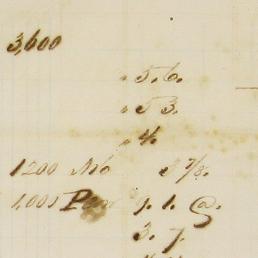 3,600
" 5. 6.
" 5 3.
" 4.
1200 No 3 7/8.
1,000 9. 1. @
3. 7.